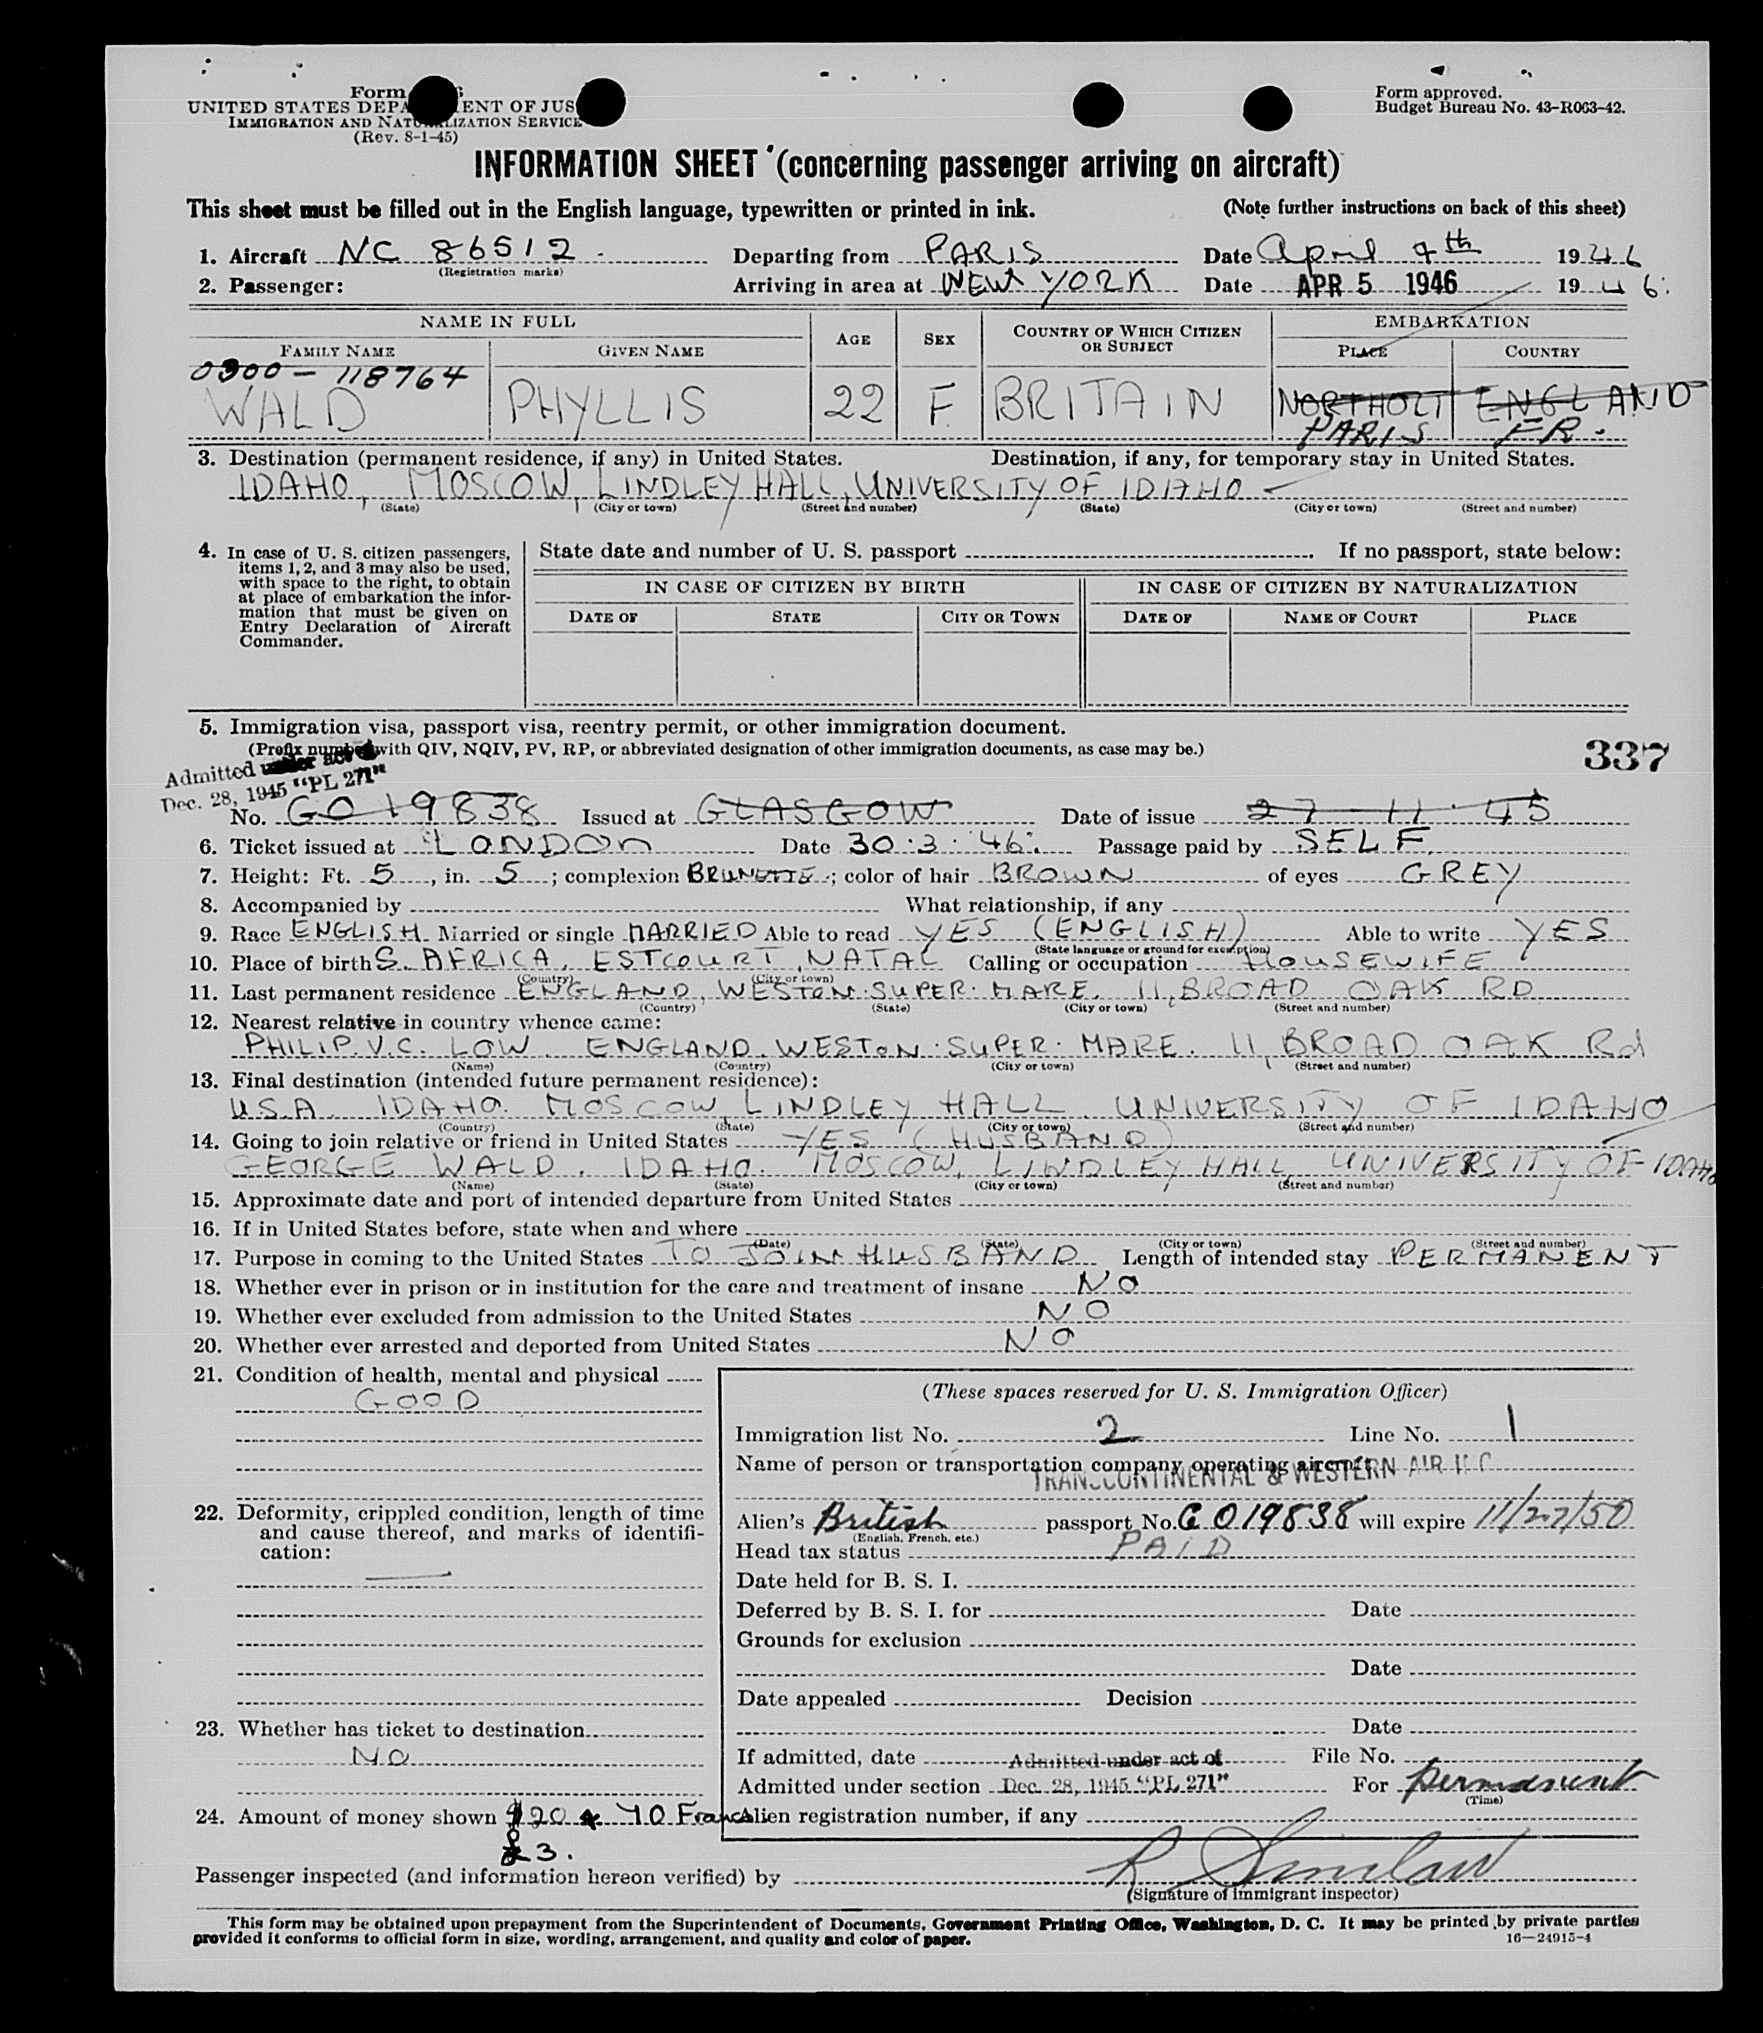 Form
UNITED STATES DEPA ENT OF JUS
IMMIGRATION AND NATURALIZATION SERVICE
(Rev. 8-1-45)
Form approved.
Budget Bureau No. 43-R063-42.
INFORMATION SHEET (concerning passenger arriving on aircraft)
This sheet must be filled out in the English language, typewritten or printed in ink. (Note further instructions on back of this sheet)
1. Aircraft NC 86512 Departing from PARIS Date April 4th 1946
(Registration marks)
2. Passenger: Arriving in area at NEW YORK Date APR 5 1946 1946
NAME IN FULL AGE SEX COUNTRY OF WHICH CITIZEN OR SUBJECT EMBARKATION
FAMILY NAME GIVEN NAME PLACE COUNTRY
0300-118764
WALD PHYLLIS 22 F. BRITAIN NORTHOLT ENGLAND
PARIS FR.
3. Destination (permanent residence, if any) in United States. Destination, if any, for temporary stay in United States.
IDAHO, MOSCOW, LINDLEY HALL, UNIVERSITY OF IDAHO
(State) (City or town) (Street and number) (State) (City or town) (Street and number)
4. In case of U. S. citizen passengers, items 1, 2, and 3 may also be used, with space to the right, to obtain at place of embarkation the information that must be given on Entry Declaration of Aircraft Commander.
State date and number of U. S. passport If no passport, state below:
IN CASE OF CITIZEN BY BIRTH IN CASE OF CITIZEN BY NATURALIZATION
DATE OF STATE CITY OR TOWN DATE OF NAME OF COURT PLACE
5. Immigration visa, passport visa, reentry permit, or other immigration document.
(Prefix number with QIV, NQIV, PV, RP, or abbreviated designation of other immigration documents, as case may be.)
337
Admitted under act of
Dec. 28, 1945 "PL 271"
No. GO 19838 Issued at GLASGOW Date of issue 27-11-45
6. Ticket issued at LONDON Date 30.3.46. Passage paid by SELF.
7. Height: Ft. 5, in. 5; complexion BRUNETTE; color of hair BROWN of eyes GREY
8. Accompanied by What relationship, if any
9. Race ENGLISH Married or single MARRIED Able to read YES (ENGLISH) Able to write YES
(State language or ground for exemption)
10. Place of birth S. AFRICA, ESTCOURT, NATAL Calling or occupation HOUSEWIFE
(Country) (City or town)
11. Last permanent residence ENGLAND, WESTON.SUPER.MARE. 11, BROAD OAK RD
(Country) (State) (City or town) (Street and number)
12. Nearest relative in country whence came:
PHILIP.V.C. LOW. ENGLAND. WESTON.SUPER.MARE. 11, BROAD OAK Rd
(Name) (Country) (City or town) (Street and number)
13. Final destination (intended future permanent residence):
U.S.A. IDAHO. MOSCOW, LINDLEY HALL. UNIVERSITY OF IDAHO
(Country) (State) (City or town) (Street and number)
14. Going to join relative or friend in United States YES (HUSBAND)
GEORGE WALD. IDAHO. MOSCOW, LINDLEY HALL, UNIVERSITY OF IDAHO
(Name) (State) (City or town) (Street and number)
15. Approximate date and port of intended departure from United States
16. If in United States before, state when and where
(Date) (State) (City or town) (Street and number)
17. Purpose in coming to the United States TO JOIN HUSBAND Length of intended stay PERMANENT
18. Whether ever in prison or in institution for the care and treatment of insane NO
19. Whether ever excluded from admission to the United States NO
20. Whether ever arrested and deported from United States NO
21. Condition of health, mental and physical
GOOD
(These spaces reserved for U. S. Immigration Officer)
Immigration list No. 2 Line No. 1
Name of person or transportation company operating aircraft
TRANSCONTINENTAL & WESTERN AIR INC
22. Deformity, crippled condition, length of time and cause thereof, and marks of identification:
Alien's British passport No. GO19838 will expire 11/27/50
(English, French, etc.)
Head tax status PAID
Date held for B. S. I.
Deferred by B. S. I. for Date
Grounds for exclusion
Date
Date appealed Decision
23. Whether has ticket to destination
NO
Date
If admitted, date Admitted under act of File No.
Admitted under section Dec. 28, 1945 "PL 271" For permanent
(Time)
24. Amount of money shown $20 & 40 Francs
£3.
Alien registration number, if any
Passenger inspected (and information hereon verified) by R Sinclair
(Signature of immigrant inspector)
This form may be obtained upon prepayment from the Superintendent of Documents, Government Printing Office, Washington, D. C. It may be printed by private parties
provided it conforms to official form in size, wording, arrangement, and quality and color of paper.
16—24915-4